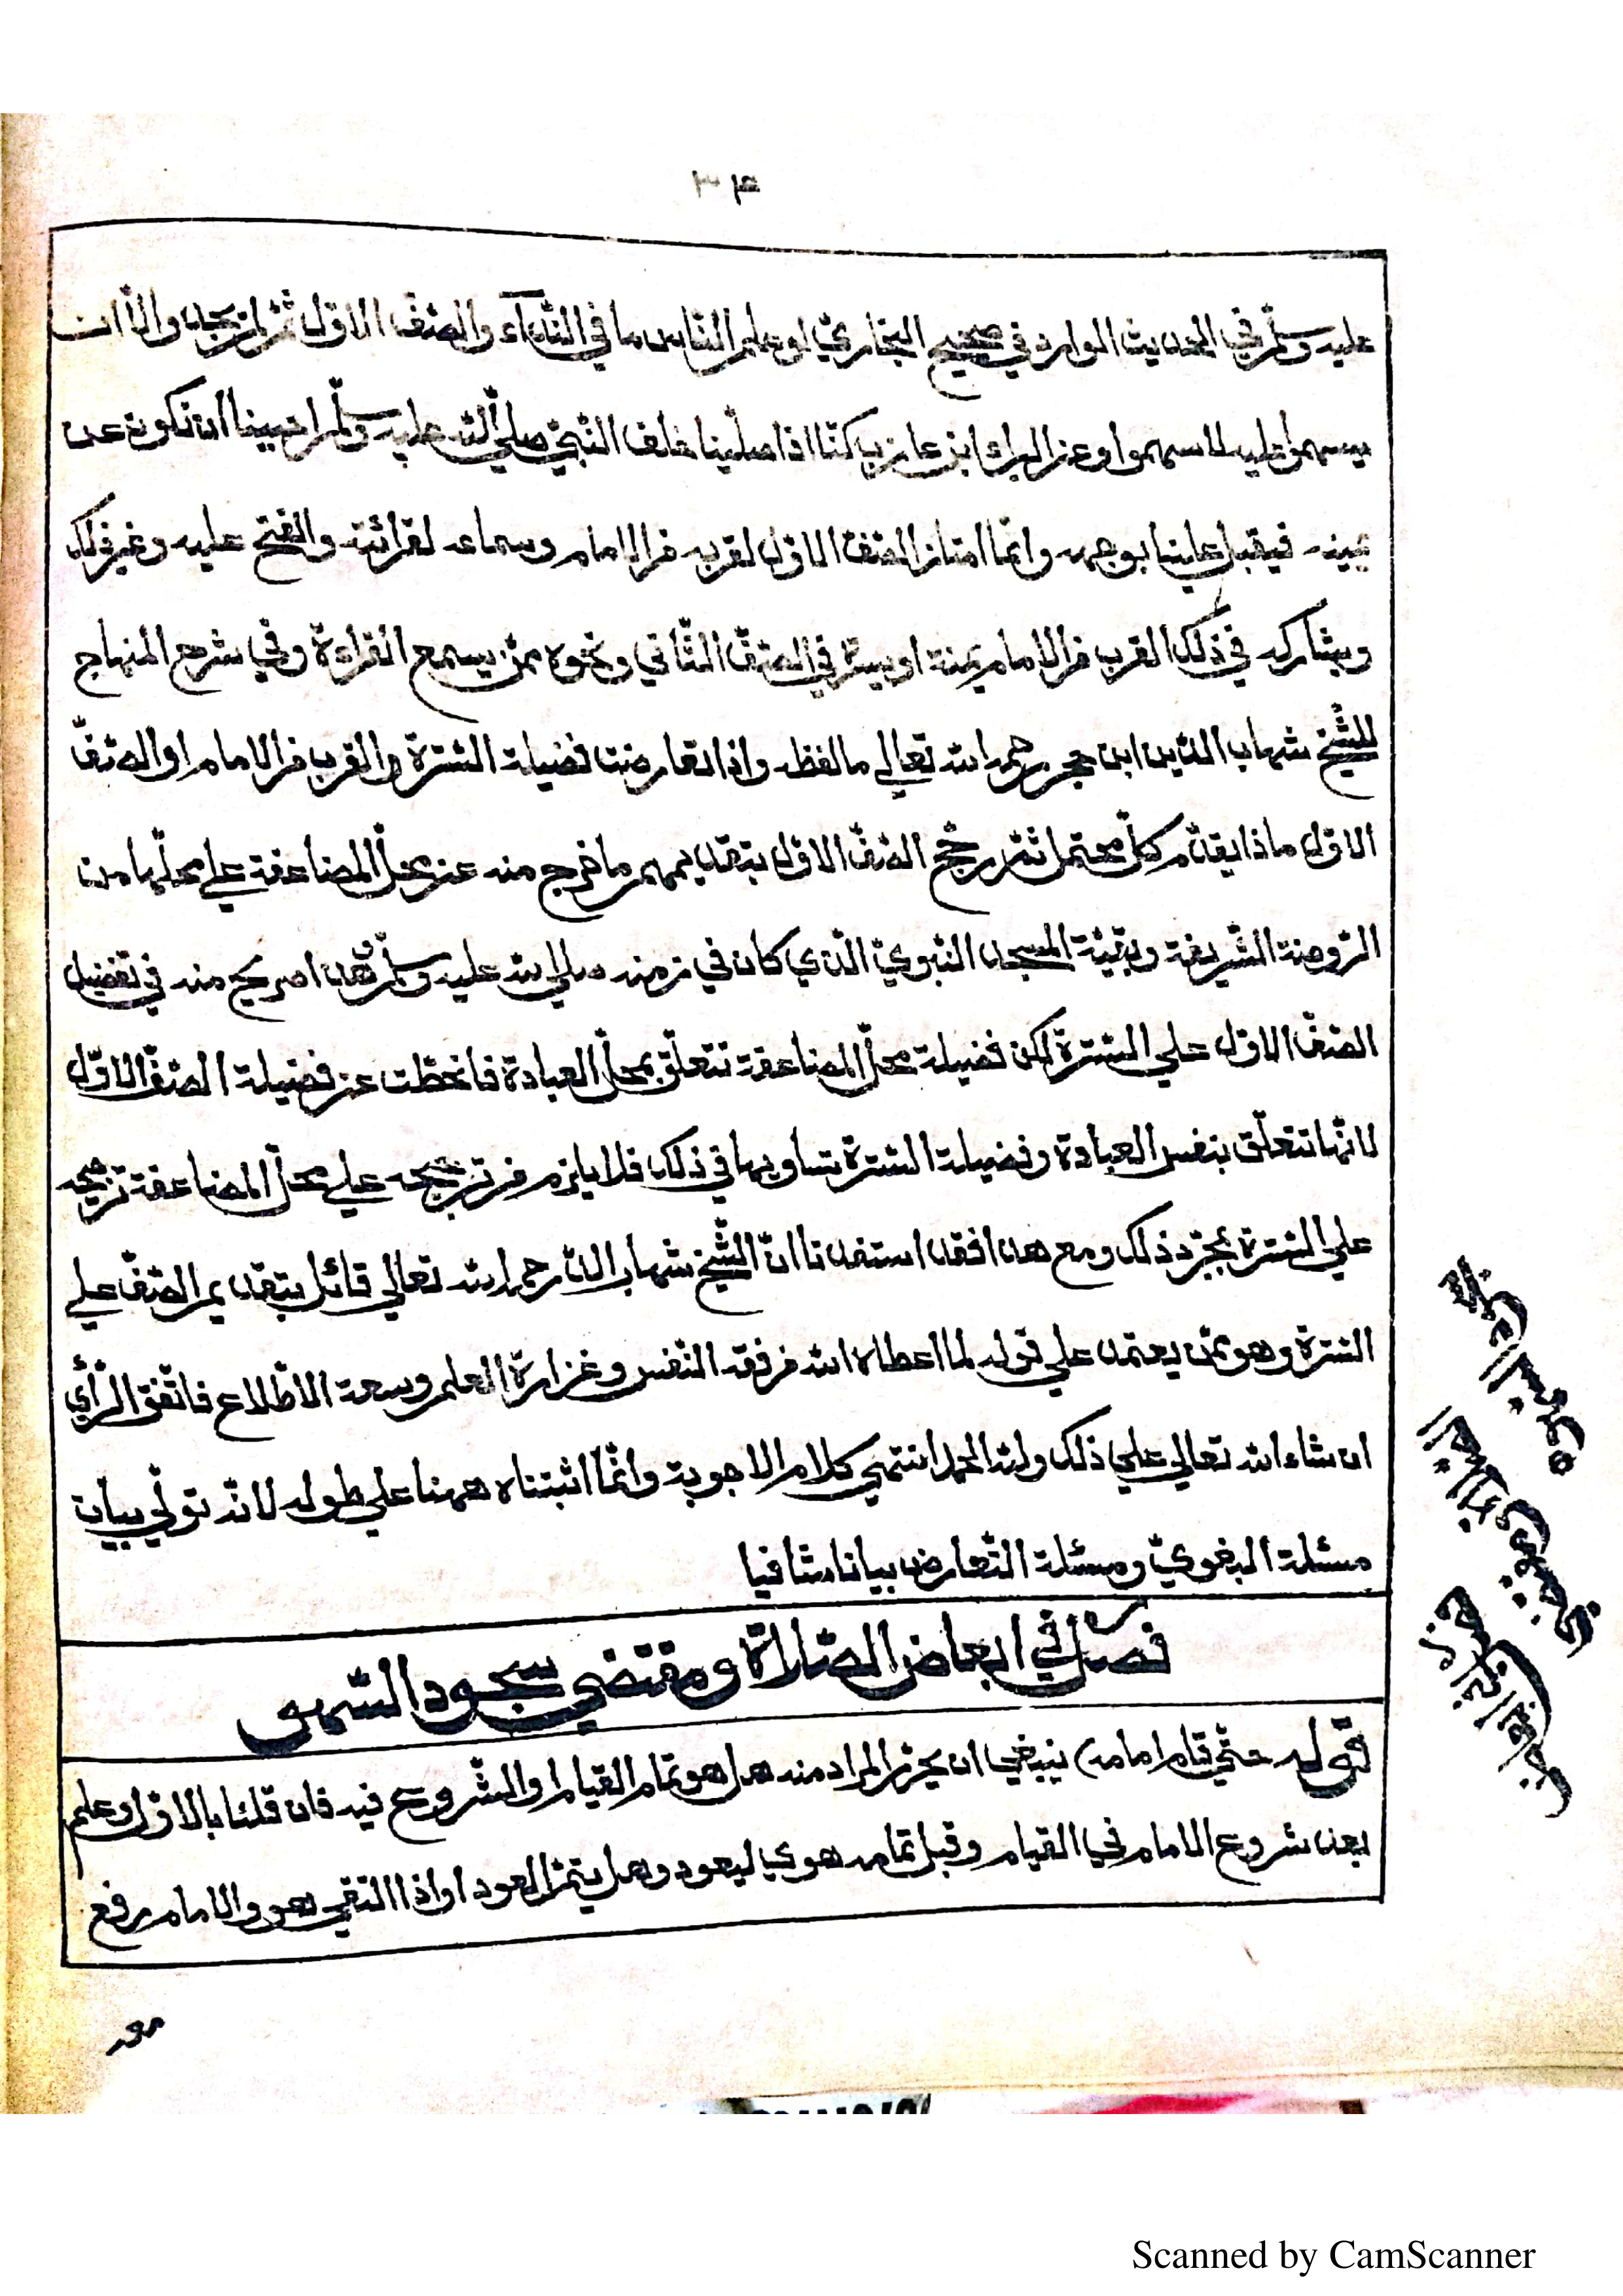 ٣٤
عليه وسلّم في الحديث الوارد في صحيح البخاريّ لو علم النّاس ما في النّداء والصّفّ الاوّل ثمّ لم يجد والّا ان
يسهموا عليه لاسهموا وعن البراء ابن عازب كنّا اذا صلّينا خلف النّبيّ صلّي اللّه عليه وسلّم احببنا ان نكون عن
يمينه فيقبل علينا بوجهه وانّما امتاز الصّفّ الاوّل لقربه من الامام وسماعه لقرائته والفتح عليه وغير ذلك
ويشاركه في ذلك القرب من الامام يمنة او يسرة في الصّفّ الثّاني ونحوه ممّن يسمع القراءة وفي شرح المنهاج
للشّيخ شهاب الدّين ابن حجر رحمه الله تعالي ما لفظه واذا تعارضت فضيلة السّترة والقرب من الامام او الصّفّ
الاوّل ماذا يقدّم كلّ محتمل ثمّ رجّح الصّفّ الاوّل بتقديمهم ما خرج منه عن محلّ المضاعفة علي محلّها من
الرّوضة الشّريفة وبقيّة المسجد النّبويّ الّذي كان في زمنه صلي الله عليه وسلّم وهذا صريح منه في تفضيل
الصّفّ الاوّل علي السّترة لكن فضيلة محلّ المضاعفة تتعلّق بمحلّ العبادة فانحطّت عن فضيلة الصّفّ الاوّل
لانّها تتعلّق بنفس العبادة وفضيلة السّترة تساويها في ذلك فلا يلزم من ترجيحه علي محلّ المضاعفة ترجيحه
علي السّترة بمجرّد ذلك ومع هذا فقد استفدنا انّ الشّيخ شهاب الدّين رحمه الله تعالي قائل بتقديم الصّفّ علي
السّترة وهو ممّن يعتمد علي قوله لما اعطاه الله من فقه النّفس وغزارة العلم وسعة الاطّلاع فاتّفق الرّأي
ان شاء الله تعالي علي ذلك ولله الحمد انتهي كلام الاجوبة وانّما اثبتناه ههنا علي طوله لانّه تولّي بيان
مسئلة البغويّ ومسئلة التّعارض بيانا شافيا
فصل في ابعاض الصّلاة ومقتضي سجود السّهو
قوله حتّي قام امامه) ينبغي ان يحرّر المراد منه هل هو تمام القيام او الشّروع فيه فان قلنا بالاوّل وعلم
بعد شروع الامام في القيام وقبل تمامه هوي ليعود وهل يتمّ العود او اذا التقي هو والامام رفع
معه
Scanned by CamScanner